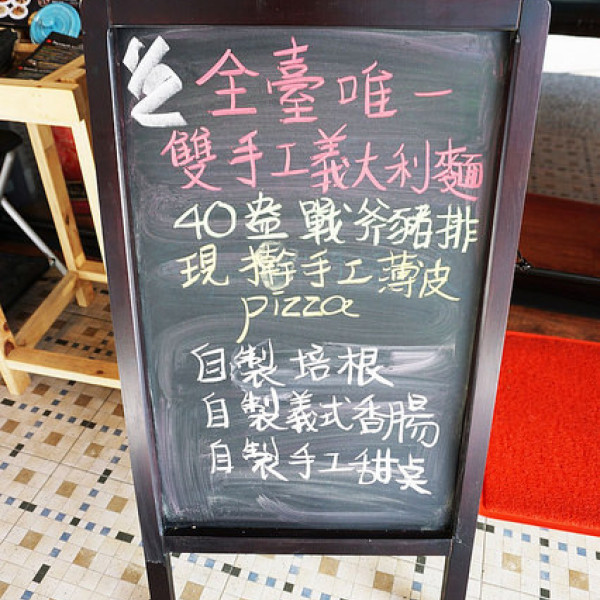 全臺唯一
雙手工義大利麵
40盎戰斧豬排
現擀手工薄皮
pizza
自製培根
自製義式香腸
自製手工甜桌